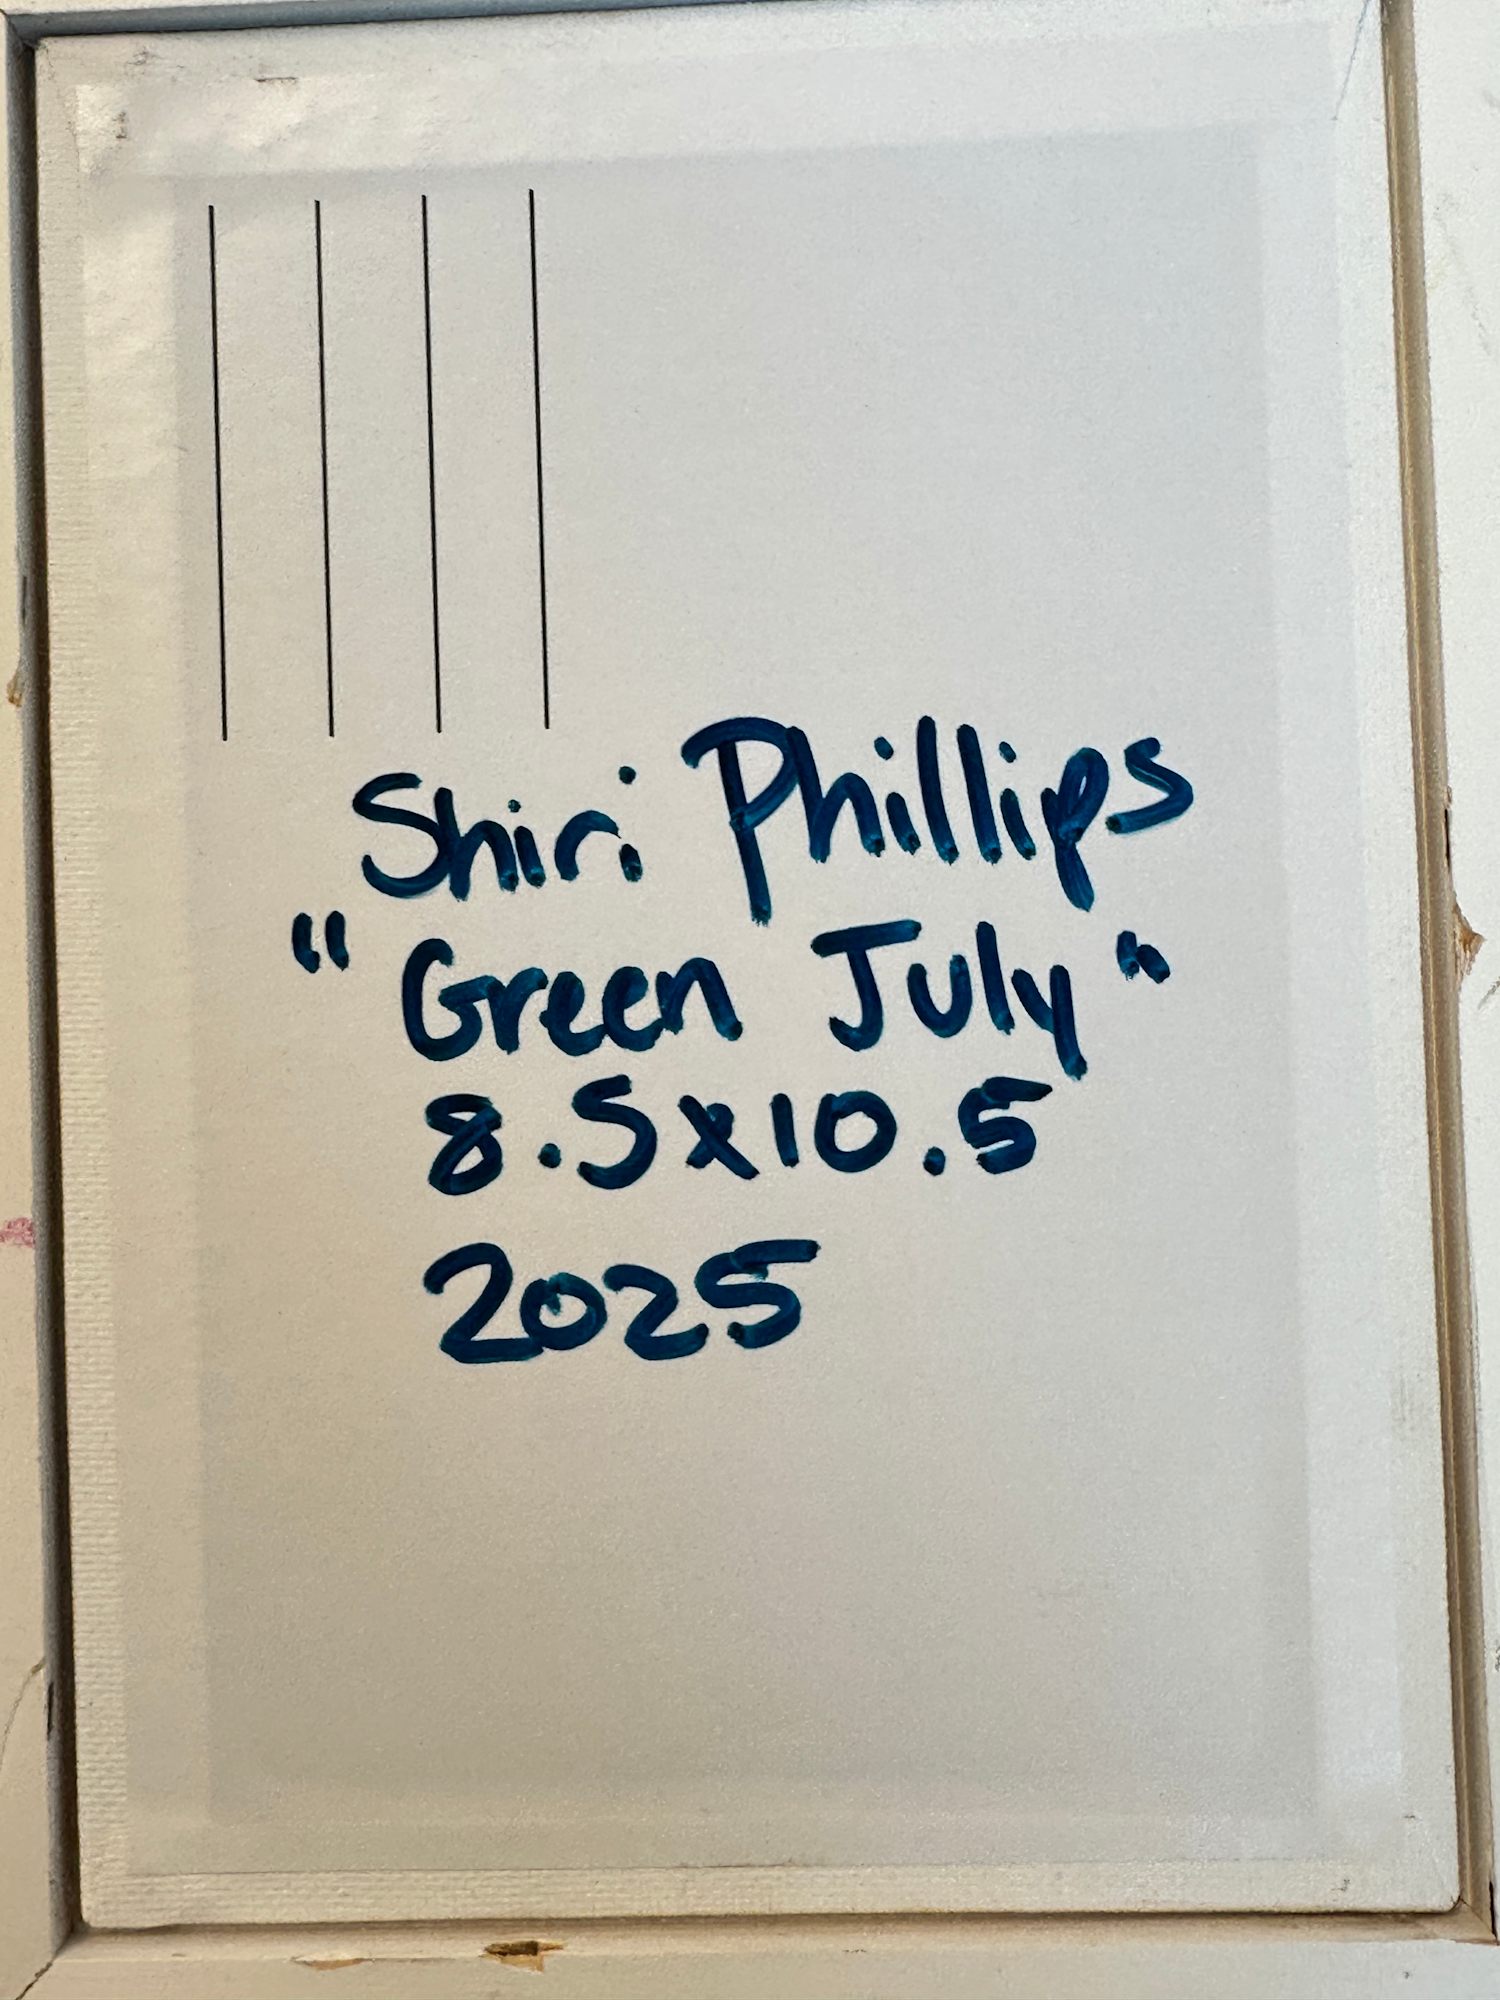 Shiri Phillips
"Green July"
8.5x10.5
2025